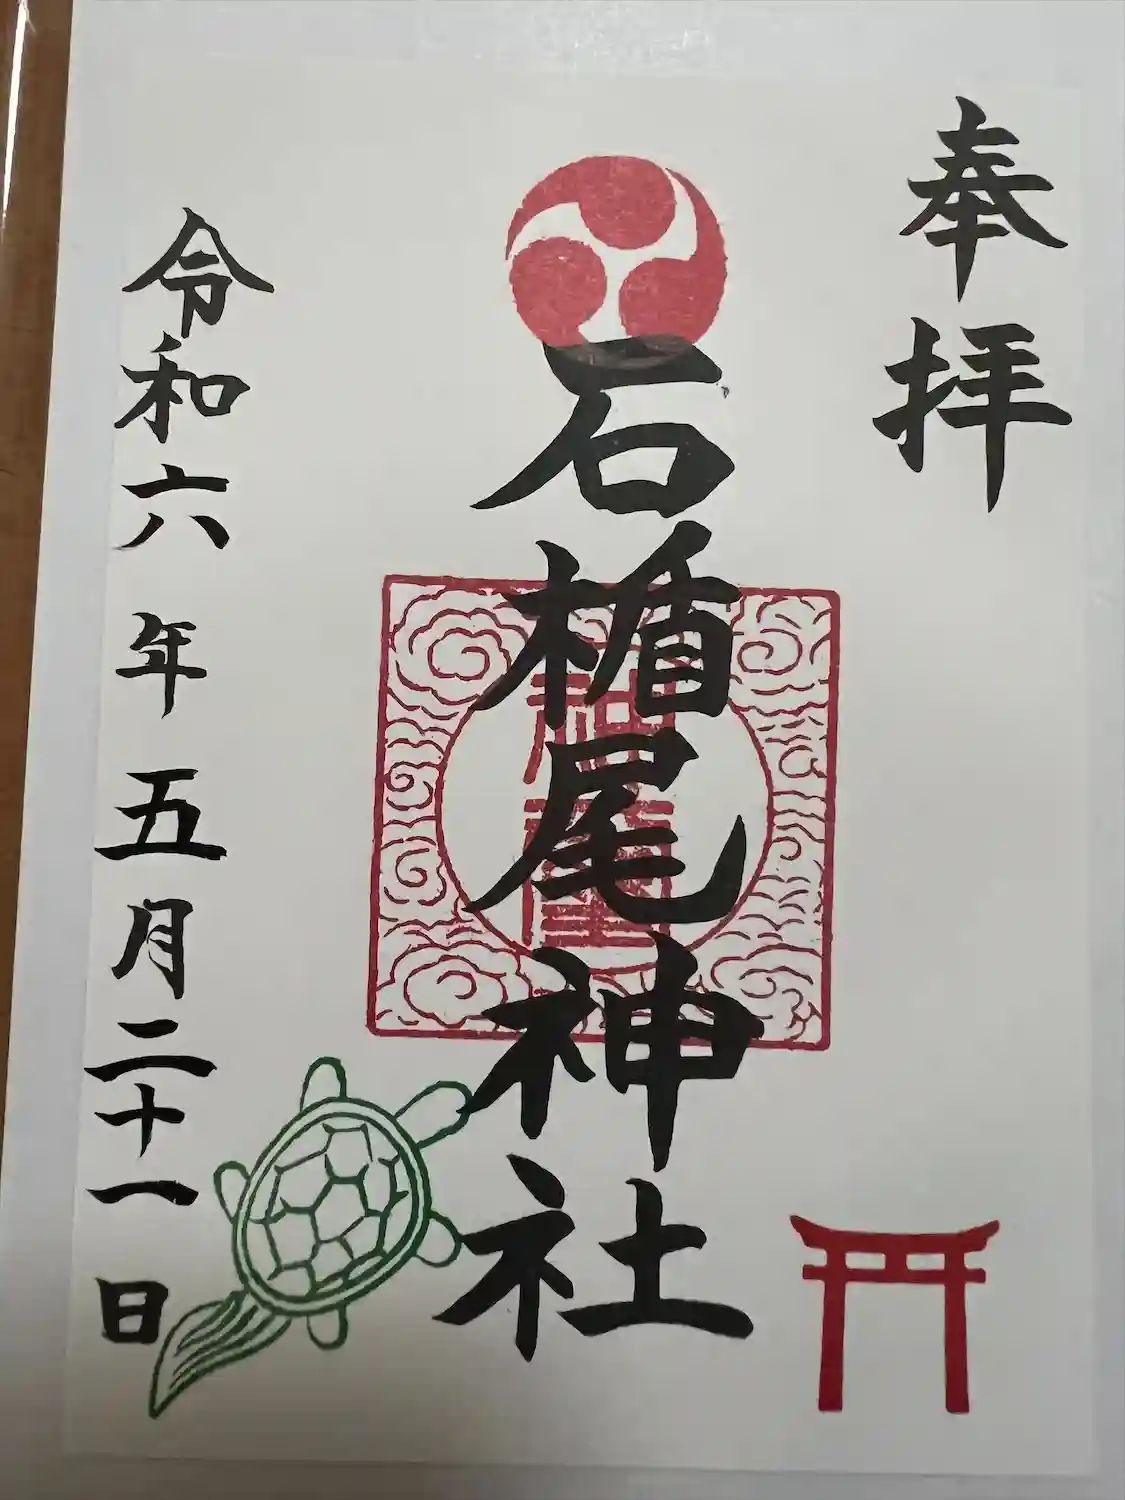 奉拝
石楯尾神社
令和六年五月二十一日